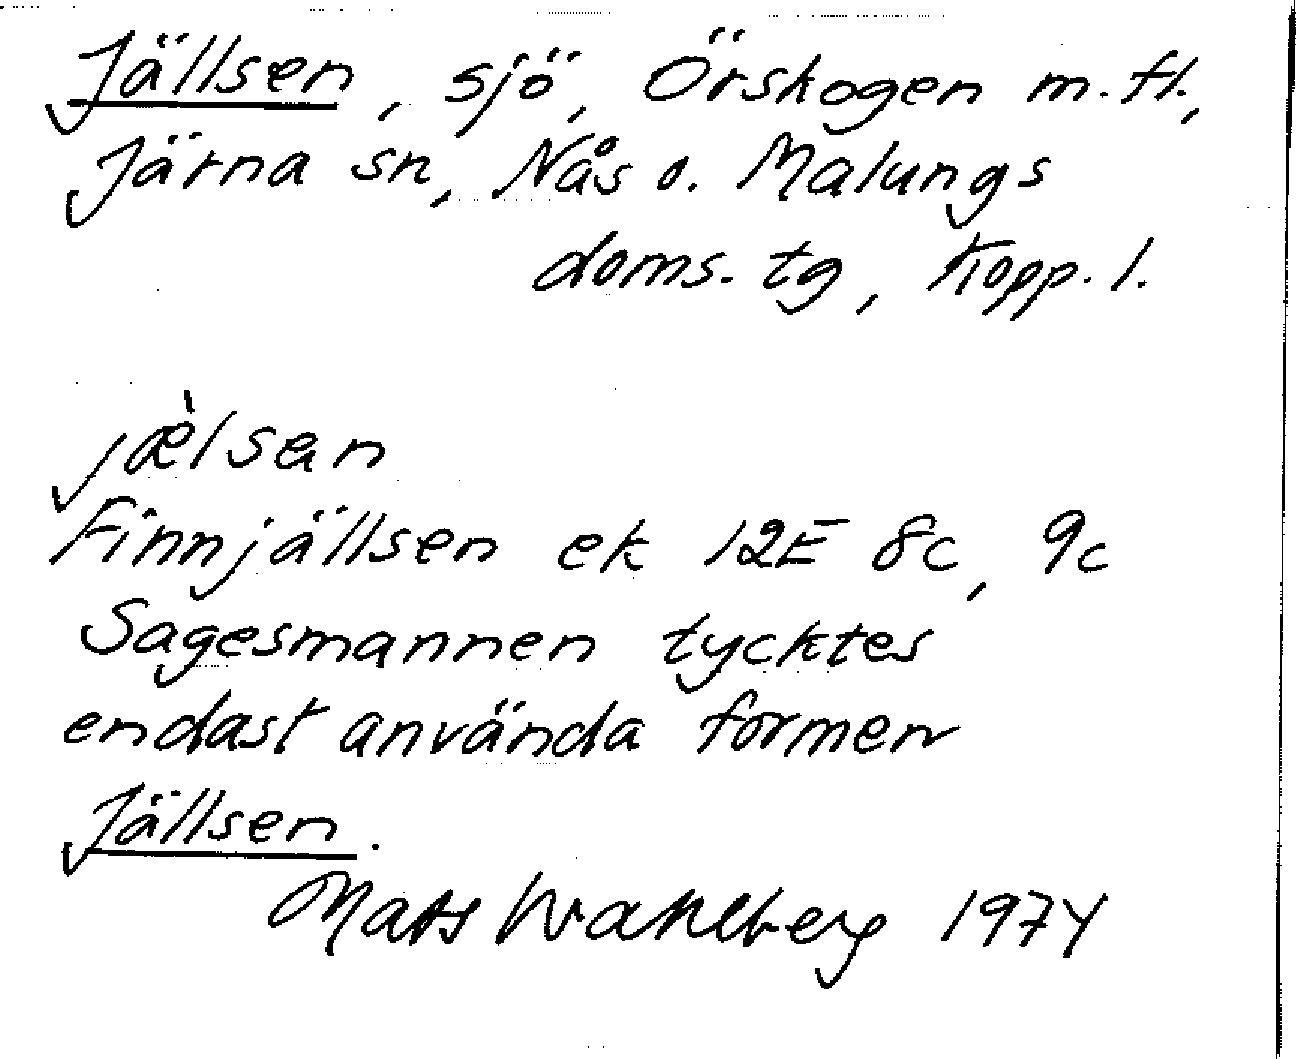 Jällsen, sjö, Örskogen m.fl.,
Järna sn, Nås o. Malungs
doms. tg, Kopp. l.
jæ̀lsan
Finnjällsen ek 12E 8c, 9c
Sagesmannen tycktes
endast använda formen
Jällsen.
Mats Wahlberg 1974